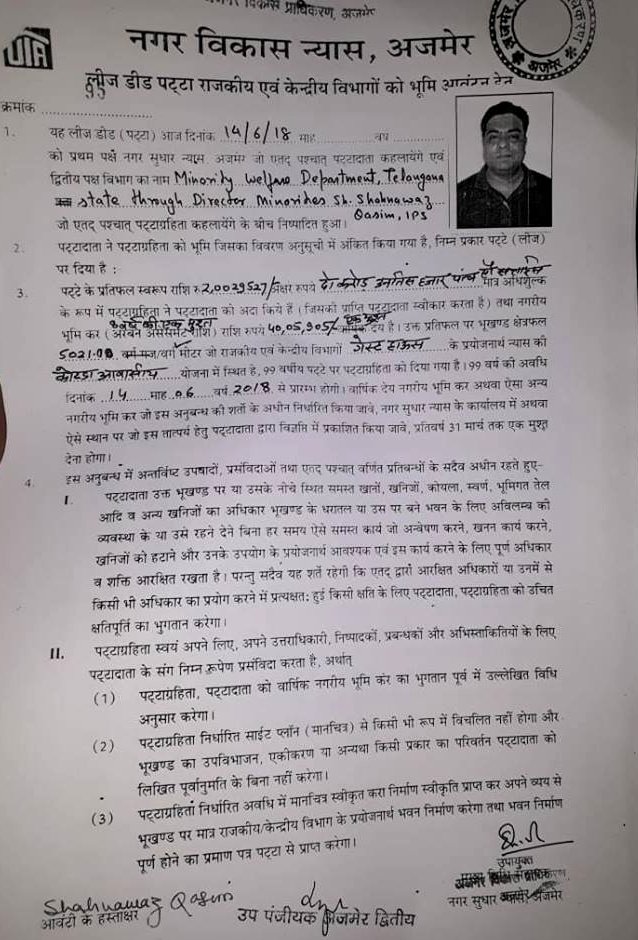 विकास प्राधिकरण, अजमेर
UIT
नगर विकास न्यास, अजमेर
अजमेर
लीज डीड पट्टा राजकीय एवं केन्द्रीय विभागों को भूमि आवंटन हेतु
क्रमांक ....................
1. यह लीज डीड (पट्टा) आज दिनांक 14/6/18 माह ............ वर्ष ............
को प्रथम पक्ष नगर सुधार न्यास अजमेर जो एतद् पश्चात् पट्टादाता कहलायेंगे एवं
द्वितीय पक्ष विभाग का नाम Minority Welfare Department, Telangana
state through Director Minorities Sh. Shahnawaz
Qasim, IPS
जो एतद् पश्चात् पट्टाग्रहिता कहलायेंगे के बीच निष्पादित हुआ।
2. पट्टादाता ने पट्टाग्रहिता को भूमि जिसका विवरण अनुसूची में अंकित किया गया है, निम्न प्रकार पट्टे (लीज)
पर दिया है :
3. पट्टे के प्रतिफल स्वरूप राशि रु 2,0029527/- अक्षर रुपये दो करोड़ उनतिस हजार पांच सौ सत्ताईस मात्र अधिशुल्क
के रूप में पट्टाग्रहिता ने पट्टादाता को अदा किये हैं (जिसकी प्राप्ति पट्टादाता स्वीकार करता है) तथा नगरीय
भूमि कर (अरबन असेसमेंट राशि) राशि रुपये 40,05,905/- वार्षिक देय है। उक्त प्रतिफल पर भूखण्ड क्षेत्रफल
5021.00 वर्ग गज/वर्ग मीटर जो राजकीय एवं केन्द्रीय विभागों गेस्ट हाऊस के प्रयोजनार्थ न्यास की
कोटडा आवासीय योजना में स्थित है, 99 वर्षीय पट्टे पर पट्टाग्रहिता को दिया गया है। 99 वर्ष की अवधि
दिनांक 14 माह 06 वर्ष 2018 से प्रारम्भ होगी। वार्षिक देय नगरीय भूमि कर अथवा ऐसा अन्य
नगरीय भूमि कर जो इस अनुबन्ध की शर्तों के अधीन निर्धारित किया जावे, नगर सुधार न्यास के कार्यालय में अथवा
ऐसे स्थान पर जो इस तात्पर्य हेतु पट्टादाता द्वारा विज्ञप्ति में प्रकाशित किया जावे, प्रतिवर्ष 31 मार्च तक एक मुश्त
देना होगा।
4. इस अनुबन्ध में अन्तर्विष्ट उपषदों, प्रसंविदाओं तथा एतद् पश्चात् वर्णित प्रतिबन्धों के सदैव अधीन रहते हुए-
I. पट्टादाता उक्त भूखण्ड पर या उसके नीचे स्थित समस्त खानों, खनिजों, कोयला, स्वर्ण, भूमिगत तेल
आदि व अन्य खनिजों का अधिकार भूखण्ड के धरातल या उस पर बने भवन के लिए अविलम्ब की
व्यवस्था के या उसे रहने देने बिना हर समय ऐसे समस्त कार्य जो अन्वेषण करने, खनन कार्य करने,
खनिजों को हटाने और उनके उपयोग के प्रयोजनार्थ आवश्यक एवं इस कार्य करने के लिए पूर्ण अधिकार
व शक्ति आरक्षित रखता है। परन्तु सदैव यह शर्त रहेगी कि एतद् द्वारा आरक्षित अधिकारों या उनमें से
किसी भी अधिकार का प्रयोग करने में प्रत्यक्षत: हुई किसी क्षति के लिए पट्टादाता, पट्टाग्रहिता को उचित
क्षतिपूर्ति का भुगतान करेगा।
II. पट्टाग्रहिता स्वयं अपने लिए, अपने उत्तराधिकारी, निष्पादकों, प्रबन्धकों और अभिस्ताकितियों के लिए
पट्टादाता के संग निम्न रूपेण प्रसंविदा करता है, अर्थात्
(1) पट्टाग्रहिता, पट्टादाता को वार्षिक नगरीय भूमि कर का भुगतान पूर्व में उल्लेखित विधि
अनुसार करेगा।
(2) पट्टाग्रहिता निर्धारित साईट प्लॉन (मानचित्र) से किसी भी रूप में विचलित नहीं होगा और
भूखण्ड का उपविभाजन, एकीकरण या अन्यथा किसी प्रकार का परिवर्तन पट्टादाता को
लिखित पूर्वानुमति के बिना नहीं करेगा।
(3) पट्टाग्रहिता निर्धारित अवधि में मानचित्र स्वीकृत करा निर्माण स्वीकृति प्राप्त कर अपने व्यय से
भूखण्ड पर मात्र राजकीय/केन्द्रीय विभाग के प्रयोजनार्थ भवन निर्माण करेगा तथा भवन निर्माण
पूर्ण होने का प्रमाण पत्र पट्टा से प्राप्त करेगा।
उपायुक्त
Shahnawaz Qasim
आवंटी के हस्ताक्षर
उप पंजीयक अजमेर द्वितीय
नगर सुधार न्यास, अजमेर